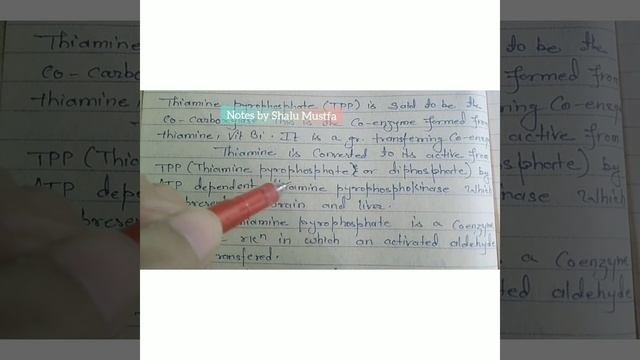 Thiamine pyrophosphate (TPP) is said to be the
Notes by Shalu Mustfa
Co-Carbo is the Co-enzyme formed from
thiamine, Vit B1. It is a gr. transferring Co-enz
Thiamine is Converted to its active from
TPP (Thiamine pyrophosphate) or diphosphate) by
ATP dependent thiamine pyrophosphokinase which
present brain and liver.
Thiamine pyrophosphate is a Coenzyme
rxn in which an activated aldehyde
transfered.